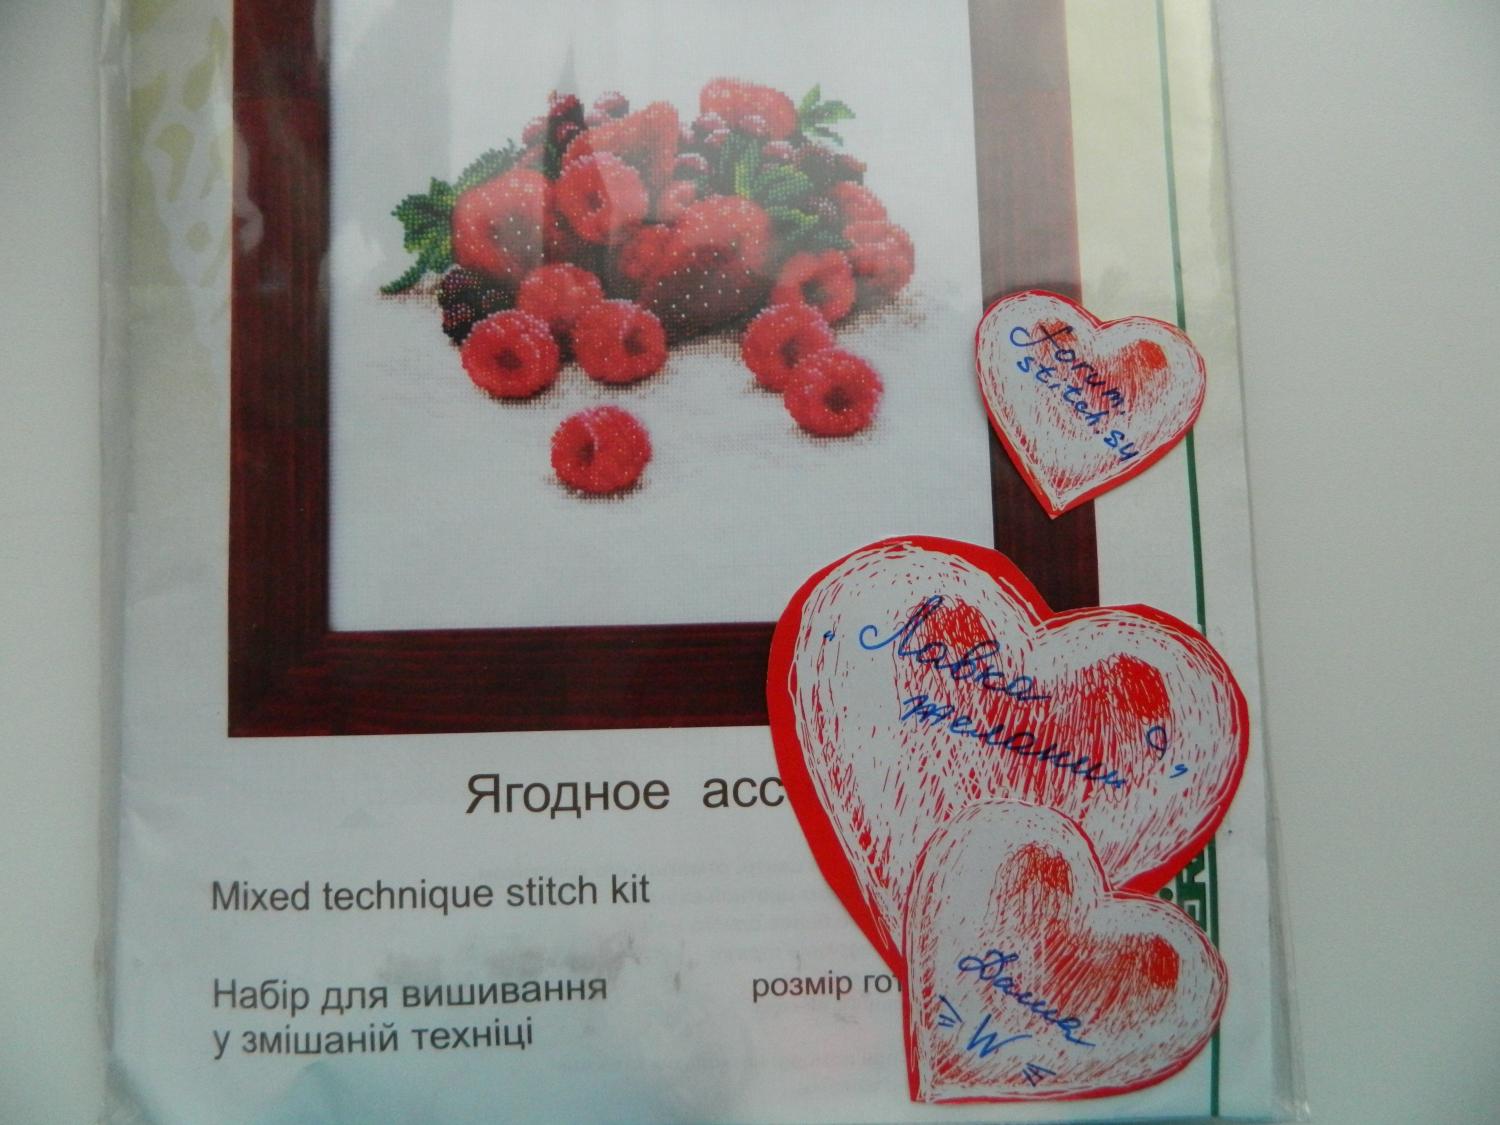 forum.
stitch.su
"Лавка
желаний"
Ягодное асс
Mixed technique stitch kit
Набір для вишивання
у змішаній техніці
розмір гот
Даша
"W"